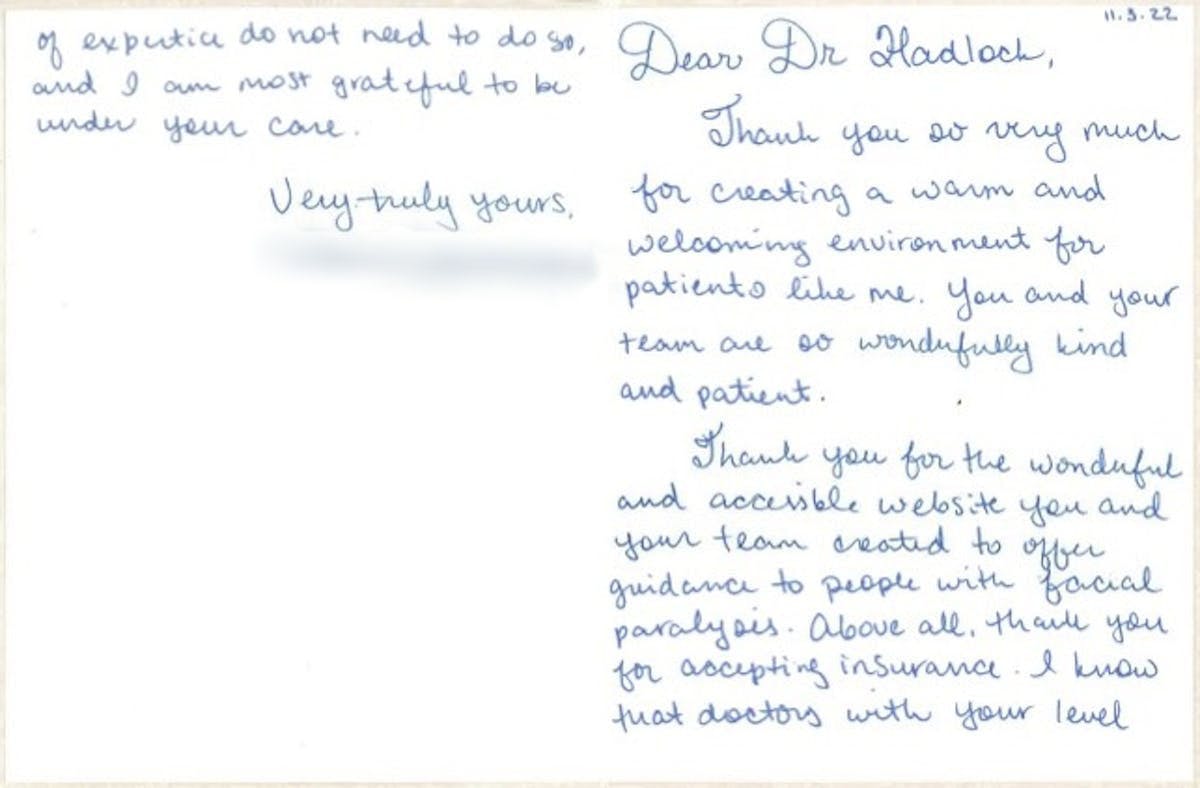 11.3.22
Dear Dr Hadlock,
Thank you so very much
for creating a warm and
welcoming environment for
patients like me. You and your
team are so wonderfully kind
and patient.
Thank you for the wonderful
and accessible website you and
your team created to offer
guidance to people with facial
paralysis. Above all, thank you
for accepting insurance. I know
that doctors with your level
of expertice do not need to do so,
and I am most grateful to be
under your care.
Very truly yours,